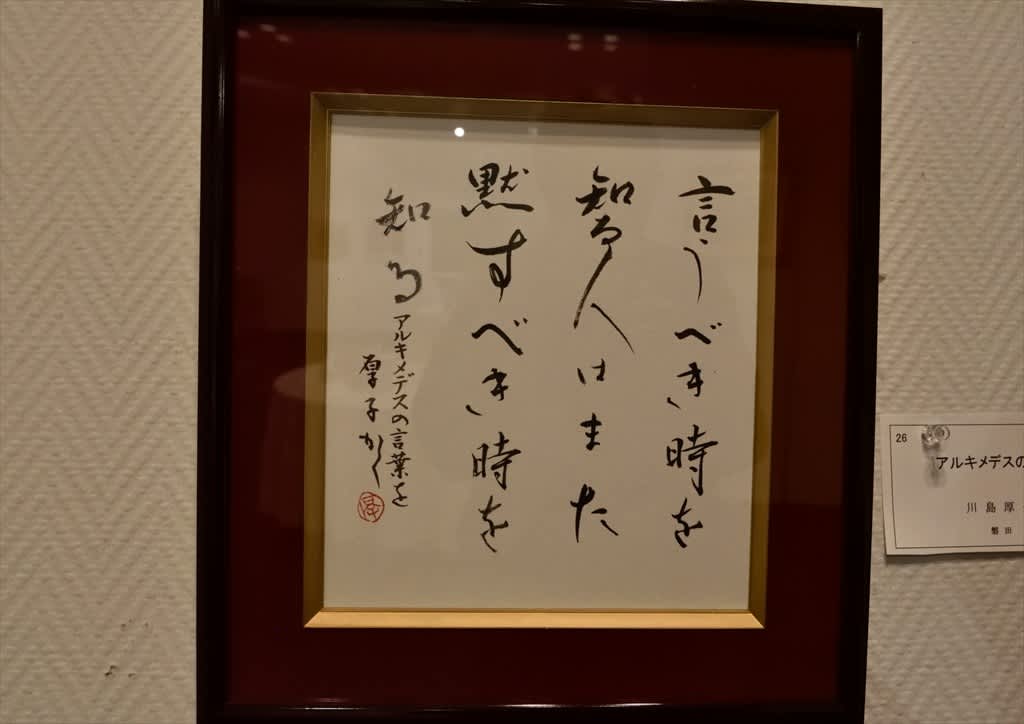 言うべき時を
知る人はまた
黙すべき時を
知る
アルキメデスの言葉を
厚子かく
26
アルキメデスの
川島厚
磐田